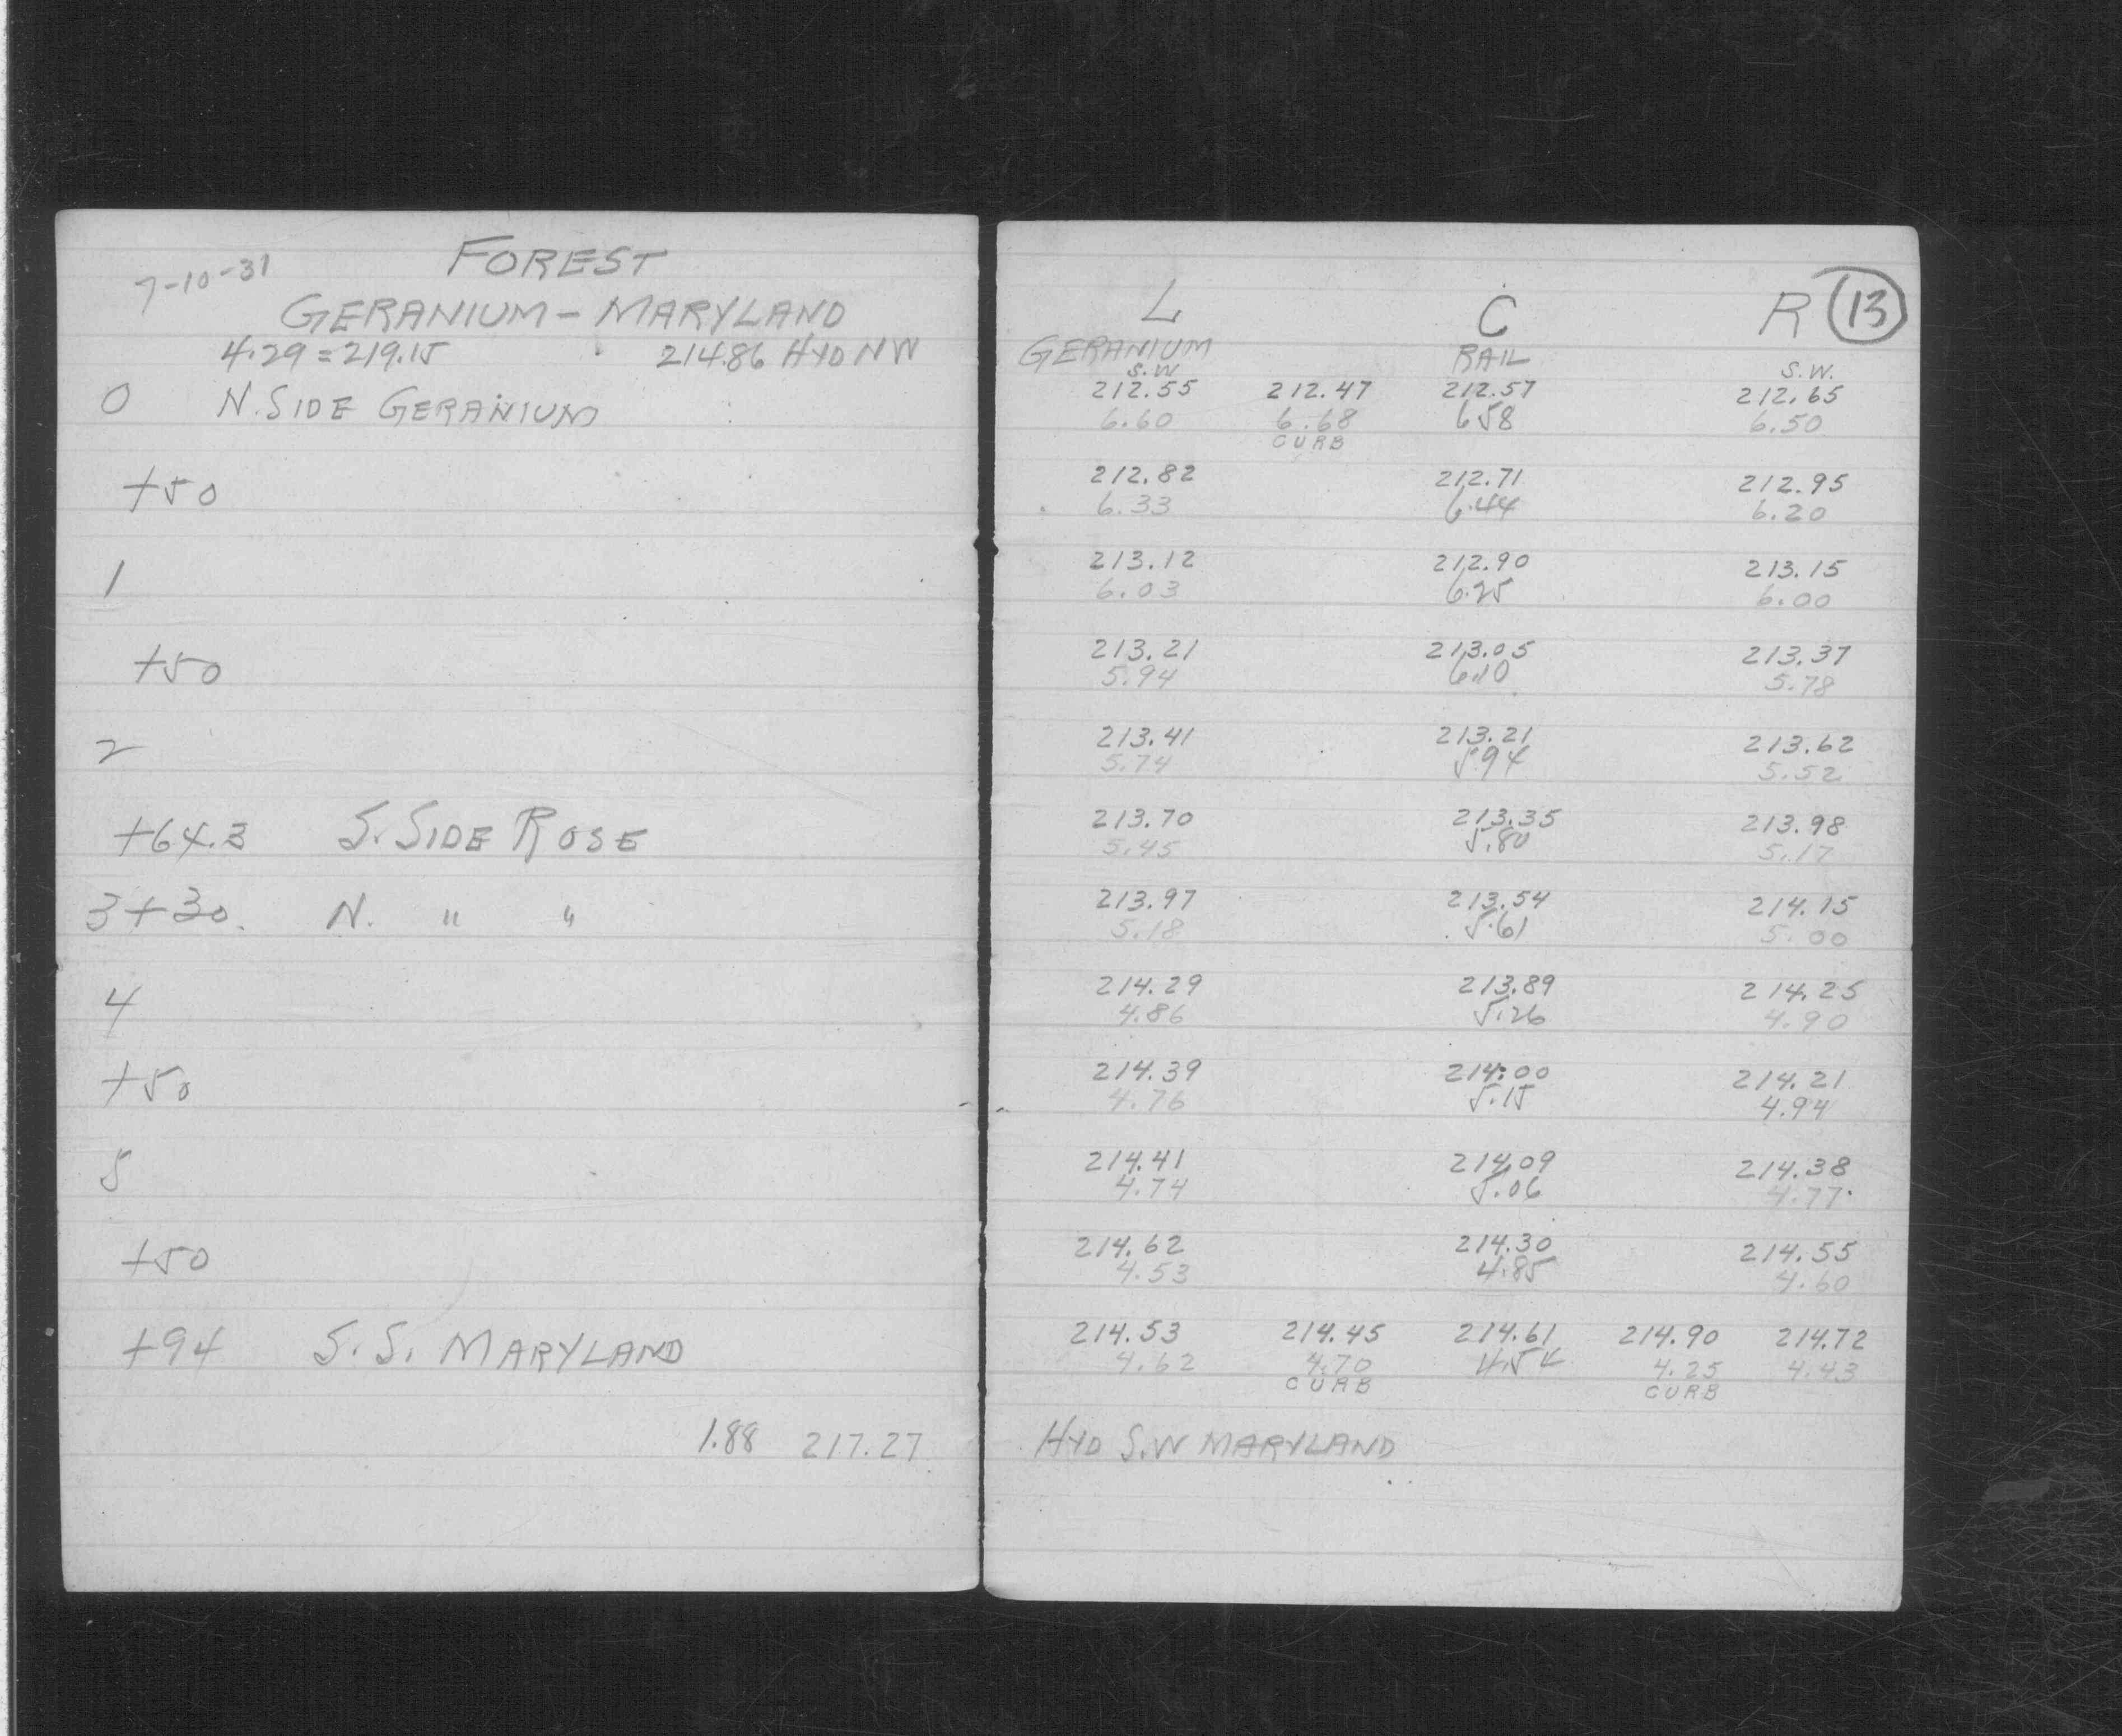 7-10-31 FOREST
GERANIUM - MARYLAND
4.29 = 219.15 214.86 HYD NW
0 N. SIDE GERANIUM
+50
1
+50
2
+64.3 S. SIDE ROSE
3+30. N. " "
4
+50
5
+50
+94 S. S. MARYLAND
1.88 217.27
L C R 13
GERANIUM RAIL
S.W. S.W.
212.55 212.47 212.57 212.65
6.60 6.68 6.58 6.50
CURB
212.82 212.71 212.95
6.33 6.44 6.20
213.12 212.90 213.15
6.03 6.25 6.00
213.21 213.05 213.37
5.94 6.10 5.78
213.41 213.21 213.62
5.74 5.94 5.52
213.70 213.35 213.98
5.45 5.80 5.17
213.97 213.54 214.15
5.18 5.61 5.00
214.29 213.89 214.25
4.86 5.26 4.90
214.39 214.00 214.21
4.76 5.15 4.94
214.41 214.09 214.38
4.74 5.06 4.77
214.62 214.30 214.55
4.53 4.85 4.60
214.53 214.45 214.61 214.90 214.72
4.62 4.70 4.54 4.25 4.43
CURB CURB
HYD S.W MARYLAND